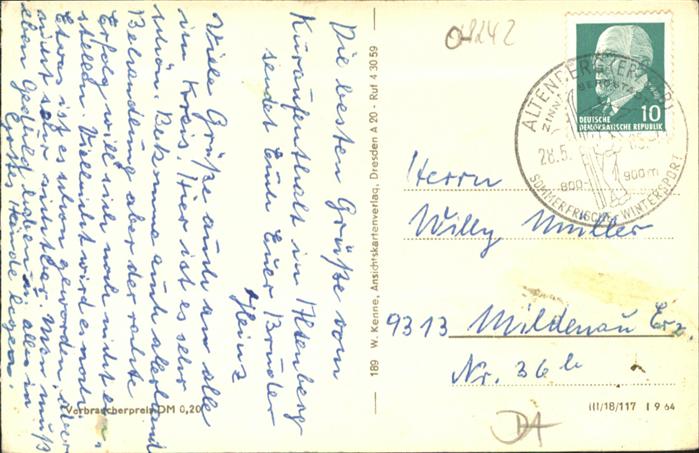 Die besten Grüße vom
Kuraufenthalt in Altenberg
sendet Euch Euer Bruder
Heinz
Viele Grüße auch an alle
im Kreis. Hier ist es sehr
schön. Bekomme auch allerhand
Behandlung aber der rechte
Erfolg will sich noch nicht ein-
stellen. Vielleicht wird es noch.
Etwas ist es schon geworden, aber
nicht sehr sichtbar. Man muß
eben Geduld haben u. alles in
Gottes Hände legen.
Verbraucherpreis DM 0,20
189 W. Kenne, Ansichtskartenverlag, Dresden A 20 - Ruf 4 30 59
08242
10
DEUTSCHE
DEMOKRATISCHE REPUBLIK
ALTENBERG (ERZGEB)
28.5.
800- 900 m
SOMMERFRISCHE WINTERSPORT
Herrn
Willy Müller
9313 Mildenau Erz.
Nr. 36 b
III/18/117 I 9 64